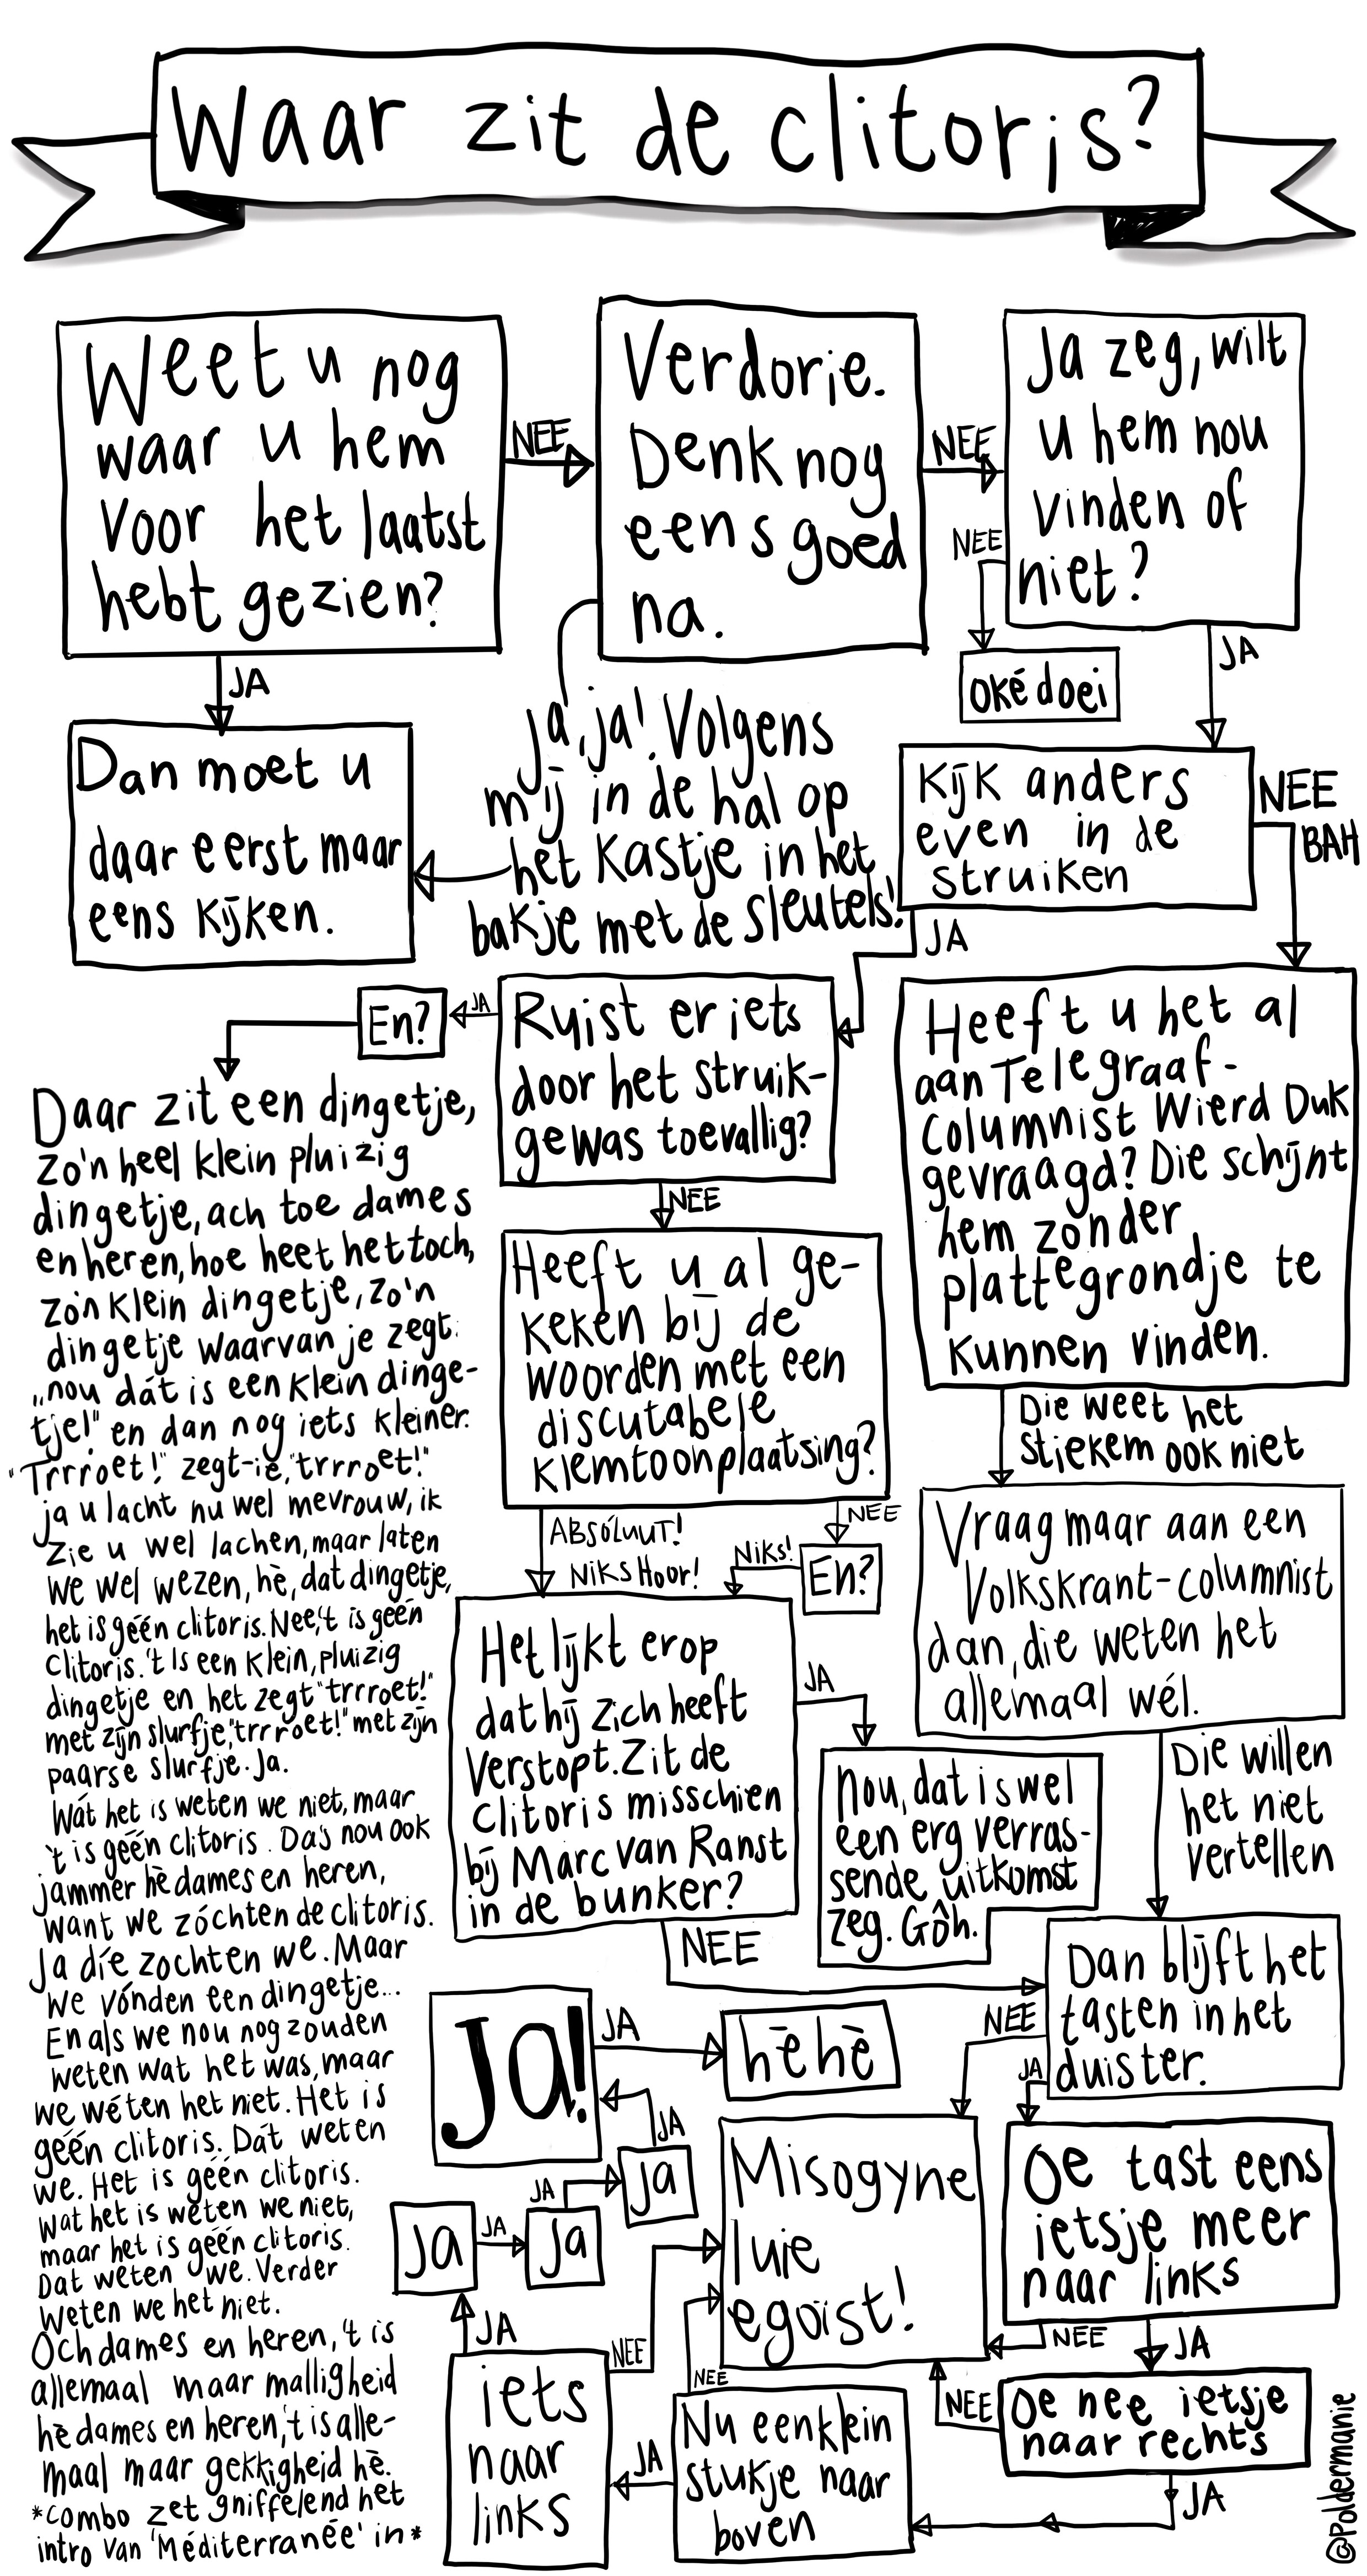 Waar zit de clitoris?
Weet u nog
waar u hem
voor het laatst
hebt gezien?
NEE
Verdorie.
Denk nog
eens goed
na.
NEE
Ja zeg, wilt
u hem nou
vinden of
niet?
NEE
oké doei
JA
JA
Dan moet u
daar eerst maar
eens kijken.
Ja, ja! Volgens
mij in de hal op
het kastje in het
bakje met de sleutels!
Kijk anders
even in de
struiken
NEE
BAH
JA
Ruist er iets
door het struik-
gewas toevallig?
JA
En?
Daar zit een dingetje,
zo'n heel klein pluizig
dingetje, ach toe dames
en heren, hoe heet het toch,
zo'n klein dingetje, zo'n
dingetje waarvan je zegt:
„nou dát is een klein dinge-
tje!" en dan nog iets kleiner.
"Trrroet!" zegt-ie, "trrroet!"
ja u lacht nu wel mevrouw, ik
zie u wel lachen, maar laten
we wel wezen, hè, dat dingetje,
het is géén clitoris. Nee, 't is géén
clitoris. 't Is een klein, pluizig
dingetje en het zegt "trrroet!"
met zijn slurfje, "trrroet!" met zijn
paarse slurfje. Ja.
Wát het is weten we niet, maar
't is géén clitoris. Da's nou ook
jammer hè dames en heren,
want we zóchten de clitoris.
Ja díe zochten we. Maar
we vónden een dingetje...
En als we nou nog zouden
weten wat het was, maar
we wéten het niet. Het is
géén clitoris. Dát weten
we. Het is géén clitoris.
Wat het is weten we niet,
maar het is géén clitoris.
Dat weten we. Verder
weten we het niet.
Och dames en heren, 't is
allemaal maar malligheid
hè dames en heren, 't is alle-
maal maar gekkigheid hè.
*combo zet gniffelend het
intro van 'Méditerranée' in*
NEE
Heeft u al ge-
keken bij de
woorden met een
discutabele
klemtoonplaatsing?
ABSÓLUUT!
NIKS HOOR!
NEE
En?
Niks!
Heeft u het al
aan Telegraaf-
columnist Wierd Duk
gevraagd? Die schijnt
hem zonder
plattegrondje te
kunnen vinden.
Die weet het
stiekem ook niet
Vraag maar aan een
Volkskrant-columnist
dan, die weten het
allemaal wél.
Die willen
het niet
vertellen
Het lijkt erop
dat hij zich heeft
verstopt. Zit de
clitoris misschien
bij Marc van Ranst
in de bunker?
JA
Nou, dat is wel
een erg verras-
sende uitkomst
zeg. Gôh.
NEE
Dan blijft het
tasten in het
duister.
NEE
JA
Misogyne
luie
egoïst!
Oe tast eens
ietsje meer
naar links
NEE
JA
Oe nee ietsje
naar rechts
NEE
JA
Nu een klein
stukje naar
boven
NEE
JA
iets
naar
links
NEE
JA
Ja
JA
Ja
JA
Ja
JA
Ja!
JA
hè hè
@Poldermanie